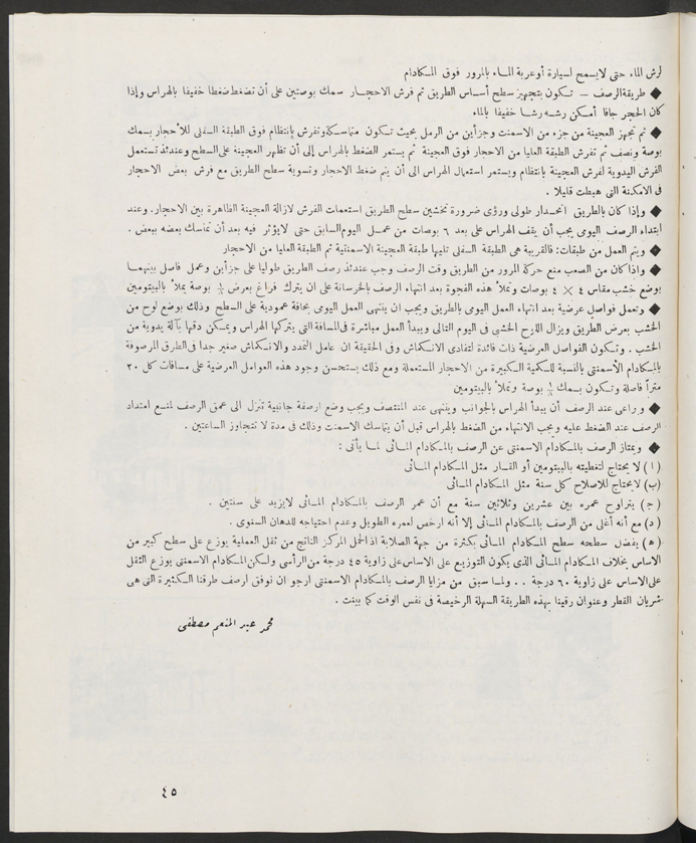 لرش الماء حتى لايسمح لسيارة أوعربة المـاء بالمرور فوق المـكادام
◆ طريقةالرصف — تـكون بتجهيز سطح أسـاس الطريق ثم فرش الاحجـار سمك بوصتين على أن تضغط ضغطا خفيفا بالهراس وإذا
كان الحجر جافا أمـكن رشـه رشـا خفيفا بالماء
◆ ثم تجهز العجينة من جزء من الاسمنت وجزأين من الرمل بحيث تـكون متماسـكة وتفرش بإنتظام فوق الطبقة السفلى للأحجار بسمك
بوصة ونصف ثم تفرش الطبقة العليا من الاحجار فوق العجينة ثم يستمر الضغط بالهراس إلى أن تظهر العجينة على السطح وعندئذ تستعمل
الفرش اليدوية لفرش العجينة بانتظام ويستمر استعمال الهراس الى أن يتم ضغط الاحجار وتسوية سطح الطريق مع فرش بعض الاحجار
فى الامكنة التى هبطت قليلا .
◆ وإذا كان بالطريق انحـدار طولى ورؤى ضرورة تخشين سطح الطريق استعملت الفرش لازالة العجينة الظاهرة بين الاحجار. وعند
ابتداء الرصف اليومى يجب أن يقف الهراس على بعد ٦ بوصات من عمـل اليوم السابق حتى لايؤثر فيه بعد أن تماسك بعضه ببعض .
◆ ويتم العمل من طبقات: فالقريبة هى الطبقة السفلى تليها طبقة العجينة الاسمنتية ثم الطبقة العليا من الاحجار
◆ واذا كان من الصعب منع حركة المرور من الطريق وقت الرصف وجب عندئذ رصف الطريق طوليا على جزأين وعمل فاصل بينهمـا
بوضع خشب مقاس ٤ × ٤ بوصات وتملأ هذه الفجوة بعد انتهاء الرصف بالخرسانة على ان يترك فراغ بعرض بوصة يملأ بالبيتومين
◆ وتعمل فواصل عرضية بعد انتهاء العمل اليومى بالطريق ويجب ان ينتهى العمل اليومى بحافة عمودية على السطح وذلك بوضع لوح من
الخشب بعرض الطريق ويزال اللوح الخشبى فى اليوم التالى ويبدأ العمل مباشرة فى المسافة التى يتركها الهراس ويمكن دقها بآلة يدوية من
الخشب . وتـكون الفواصل العرضية ذات فائدة لتفادى الانـكماش وفى الحقيقة ان عامل التمدد والانـكماش صغير جدا فى الطرق المرصوفة
بالمـكادام الأسمنتى بالنسبة للـكمية الـكبيرة من الاحجار المستعملة ومع ذلك يستحسن وجود هذه العوامل العرضية على مسافات كل ٢٠
متراً فاصلة وتـكون بسمك بوصة وتملأ بالبيتومين
◆ ويراعى عند الرصف أن يبدأ الهراس بالجوانب وينتهى عند المنتصف ويجب وضع ارصفة جانبية تنزل الى عمق الرصف لمنـع امتداد
الرصف عند الضغط عليه ويجب الانتهاء من الضغط بالهراس قبل أن يتماسك الاسمنت وذلك فى مدة لا تتجاوز الساعتين .
◆ ويمتاز الرصف بالمـكادام الاسمنتى عن الرصف بالمـكادام المـائى لمـا يأتى :
( ا ) لا يحتاج لتغطيته بالبيتومين أو القـار مثل المـكادام المـائى
(ب) لايحتاج للاصلاح كل سنة مثل المـكادام المـائى
( ج ) يتراوح عمره بين عشرين وثلاثين سنة مع أن عمر الرصف بالمـكادام المـائى لايزيد على سنتين .
( د ) مع أنه أغلى من الرصف بالمـكادام المـائى إلا أنه ارخص لعمره الطويل وعدم احتياجه للدهان السنوى .
( ه ) يفضل سطحه سطح المـكادام المـائى بكثرة من جهة الصلابة اذ الحمل المركز الناتج من ثقل العملية يوزع على سطح كبير من
الاساس بخلاف المـكادام المـائى الذى يكون التوزيع على الاساس على زاوية ٤٥ درجة من الرأسى ولـكن المـكادام الاسمنتى يوزع الثقل
على الاساس على زاوية ٦٠ درجة . . ولمـا سبق من مزايا الرصف بالمـكادام الاسمنتى ارجو ان نوفق لرصف طرقنا الـكثيرة التى هى
شريان القطر وعنوان رقينا بهذه الطريقة السهلة الرخيصة فى نفس الوقت كما بينت .
محمد عبد المنعم مصطفى
٤٥